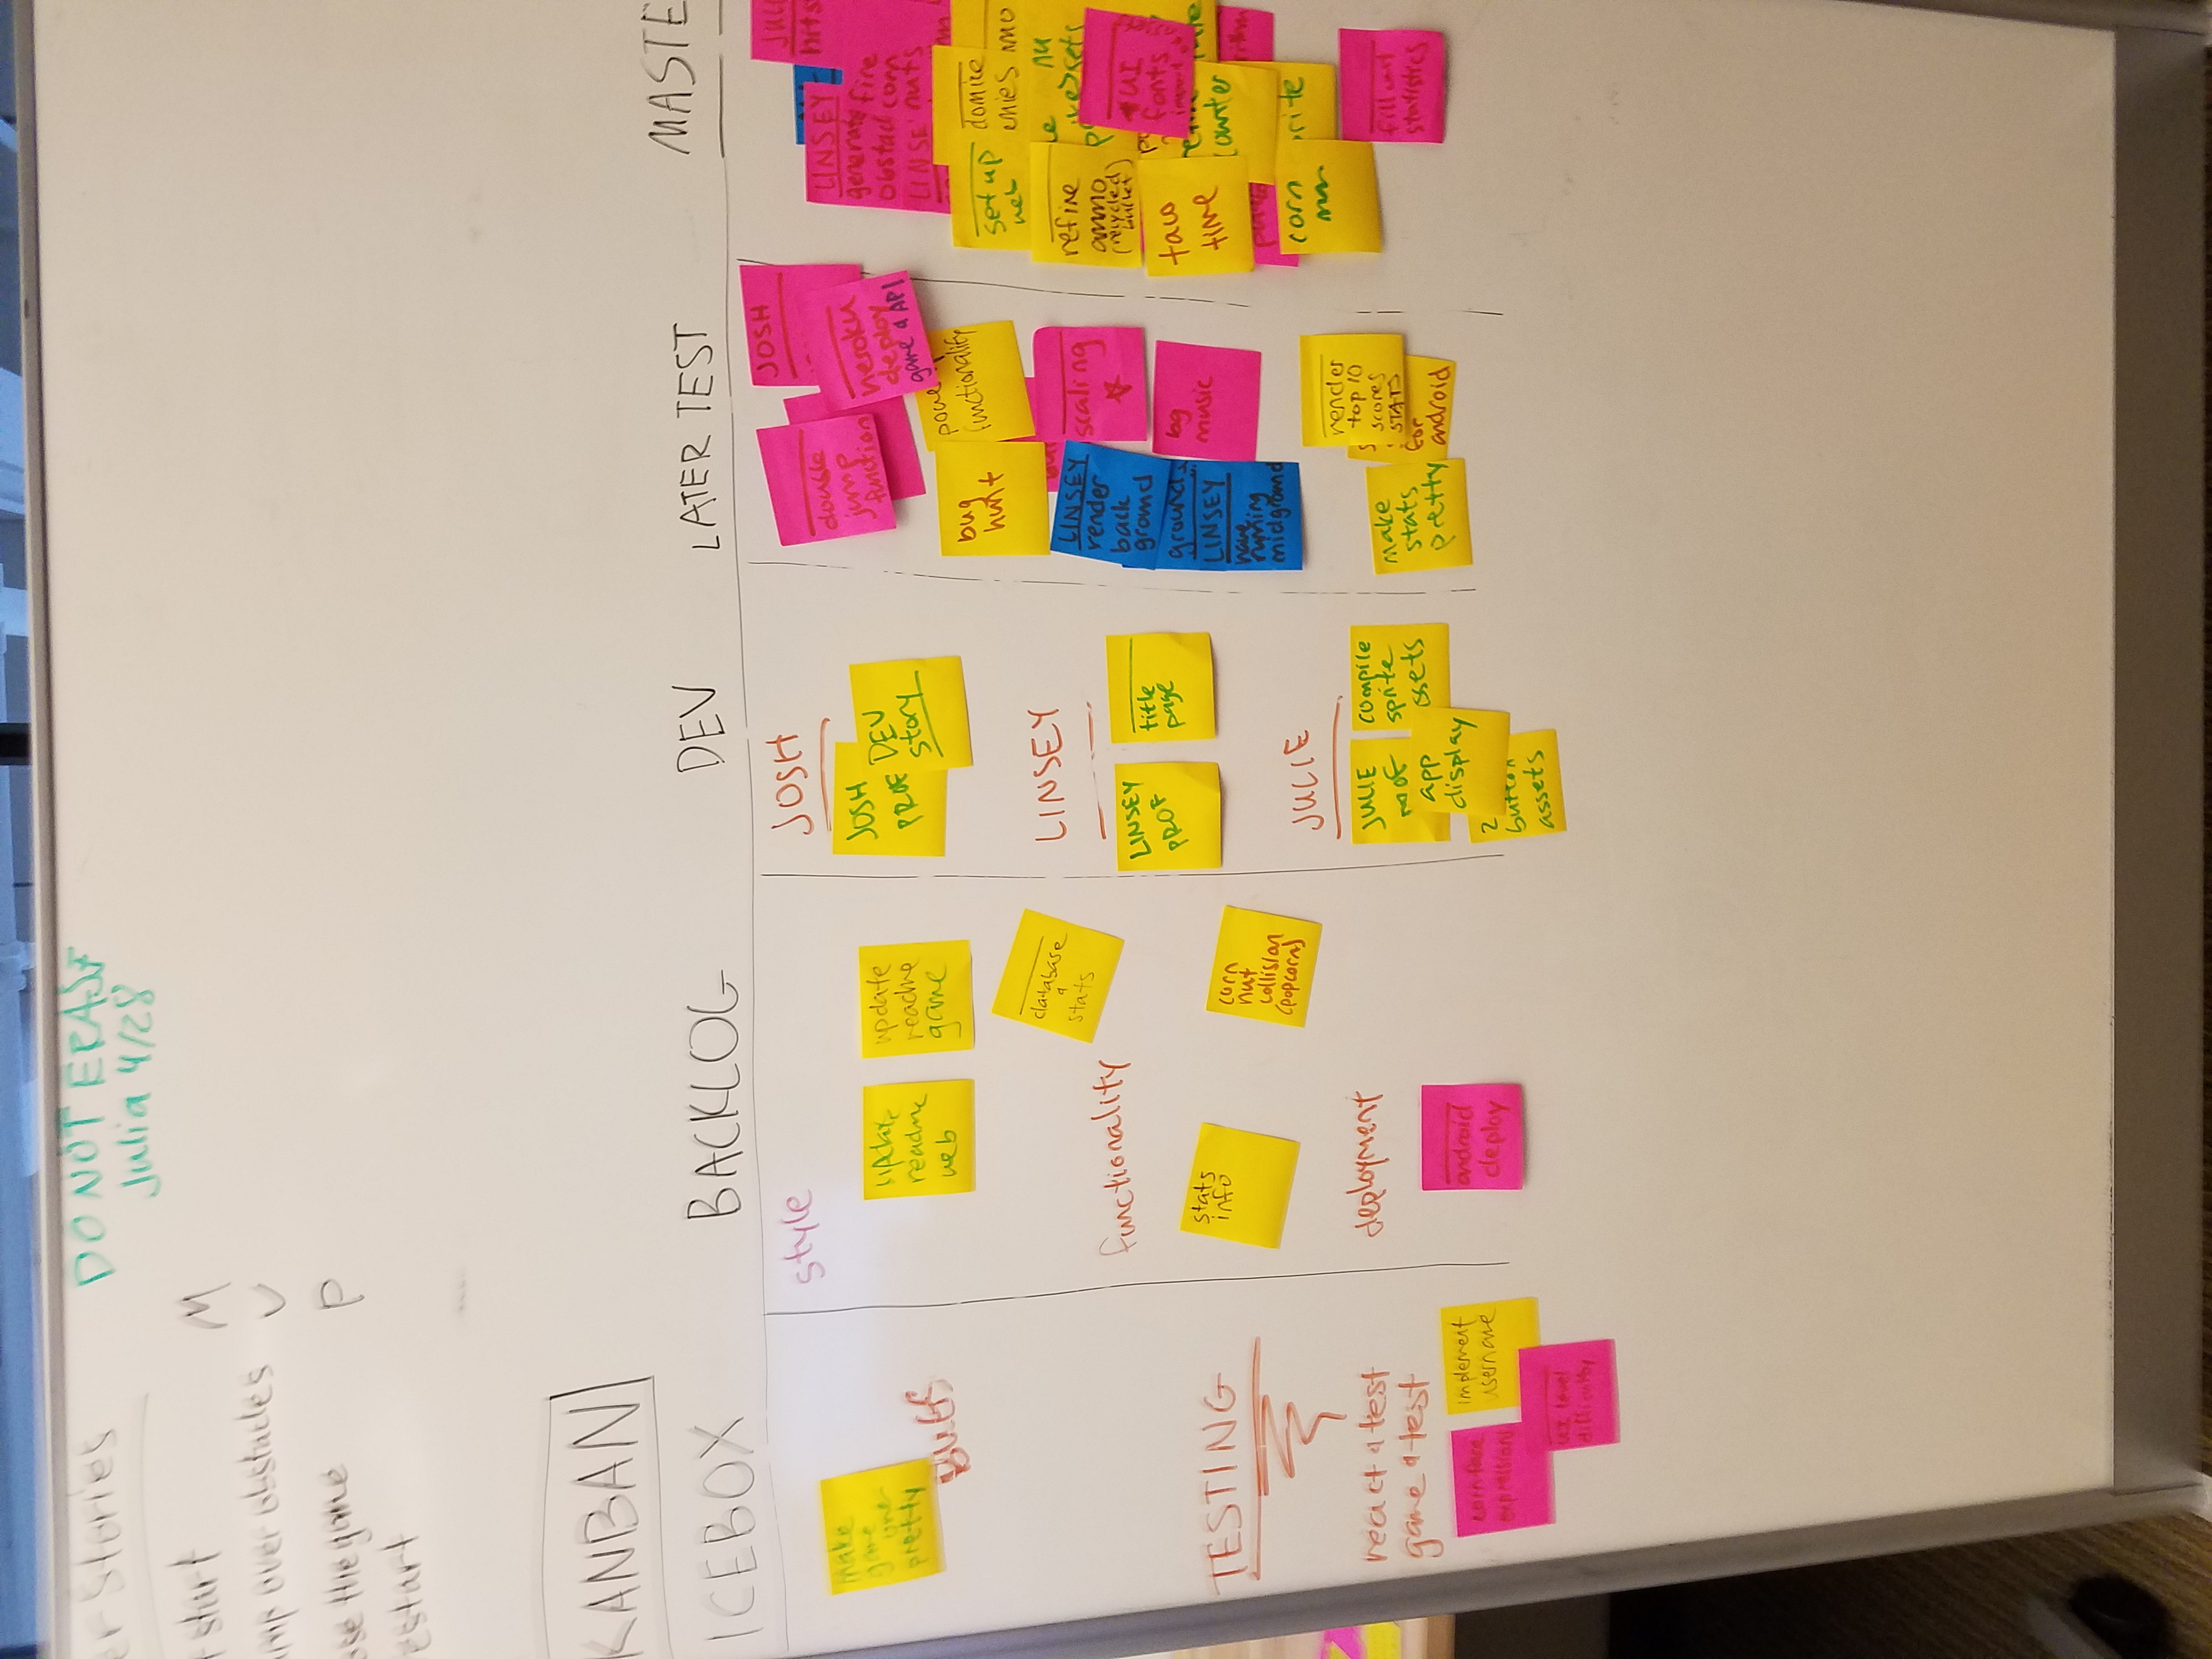 er Stories
DO NOT ERASE
Julia 4/28
t start
M
ump over obstacles
V
ose the game
P
estart
KANBAN
ICEBOX
BACKLOG
DEV
LATER TEST
MASTE
make
game
pretty
BUGS
TESTING
react & test
game & test
corn face
expressions
implement
username
UI level
difficulty
style
update
readme
web
update
readme
game
database
&
stats
functionality
stats
info
corn
nut
collision
(popcorn)
deployment
android
deploy
JOSH
JOSH
PROF
DEV
story
LINSEY
LINSEY
PROF
title
page
JULIE
JULIE
compile
sprite
assets
app
display
2
button
assets
double
jump
function
JOSH
heroku
deploy
game & API
bug
hunt
functionality
LINSEY
render
back
ground
scaling
ground
LINSEY
have
running
midground
bg
music
render
top 10
scores
STATS
make
stats
pretty
for
android
JULI
hits
LINSEY
generate
obstacl
fire
corn
nuts
LINSE
set up
web
refine
ammo
(recycled
bullet)
UI
fonts
taco
time
counter
corn
man
rite
fill out
statistics